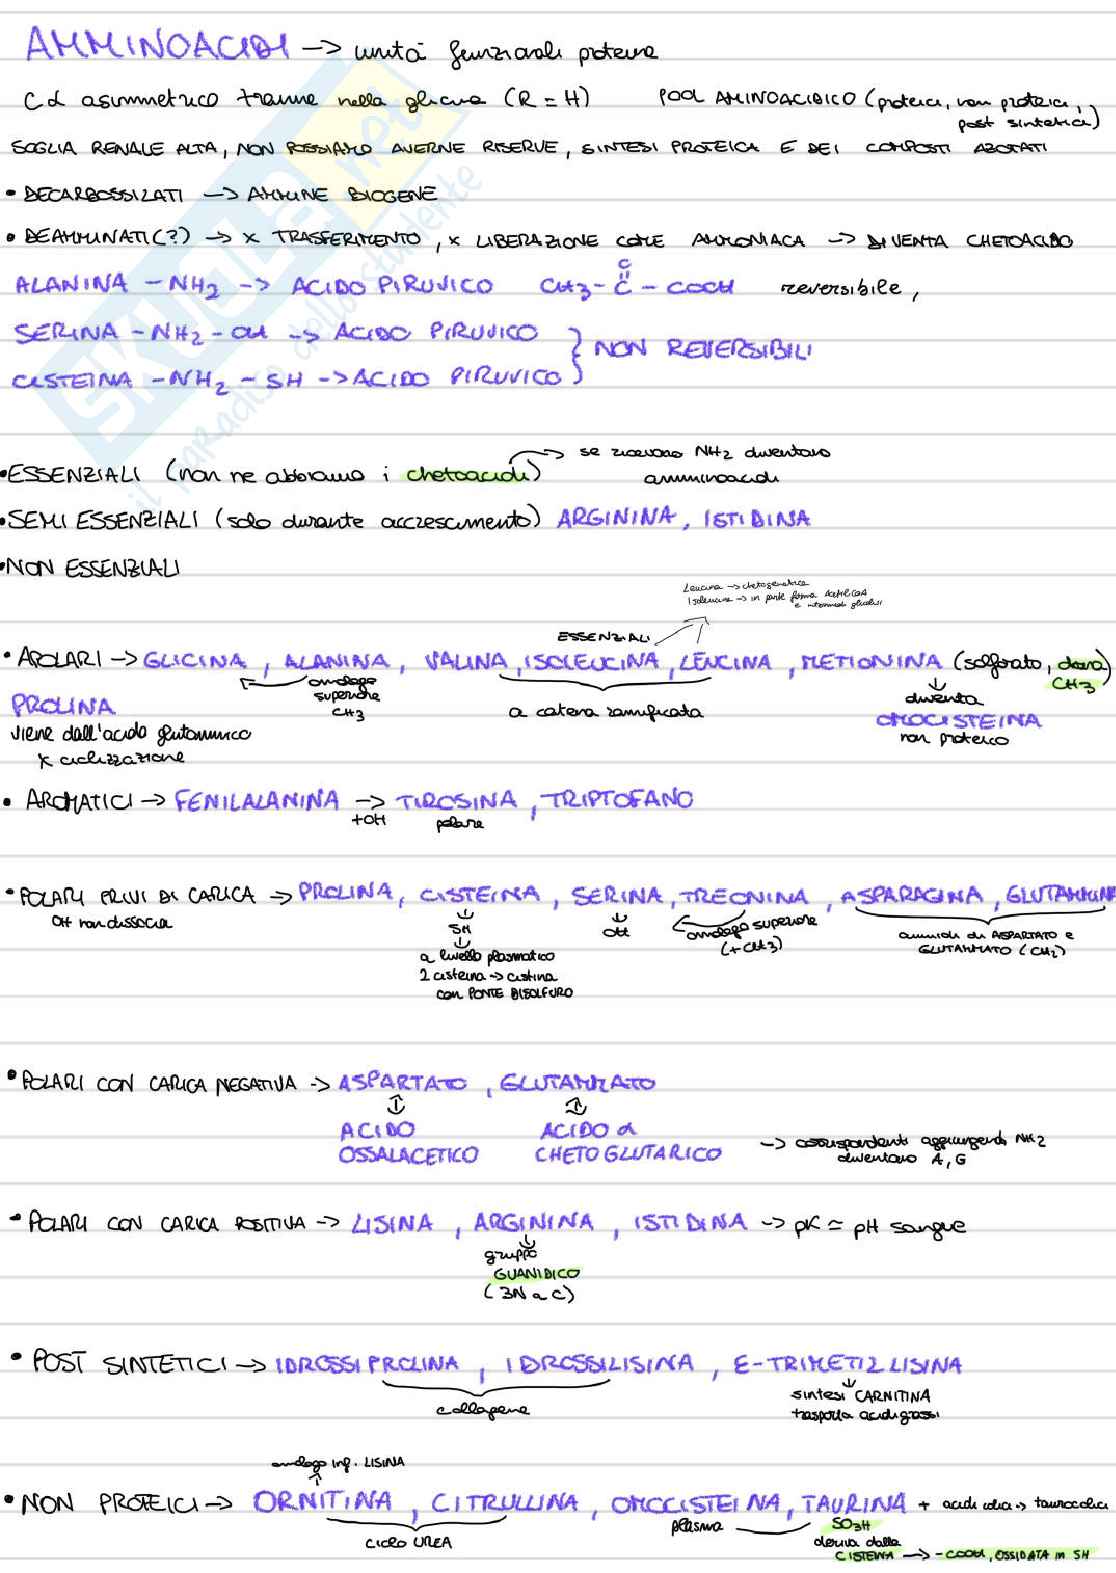 AMMINOACIDI -> unità funzionali proteine
Cα asimmetrico tranne nella glicina (R = H) POOL AMINOACIDICO (proteici, non proteici,
post sintetici)
SOGLIA RENALE ALTA, NON POSSIAMO AVERNE RISERVE, SINTESI PROTEICA E DEI COMPOSTI AZOTATI
• DECARBOSSILATI -> AMMINE BIOGENE
• DEAMMINATI(?) -> x TRASFERIMENTO, x LIBERAZIONE COME AMMONIACA -> DIVENTA CHETOACIDO
ALANINA - NH2 -> ACIDO PIRUVICO CH3 - C - COOH reversibile,
SERINA - NH2 - OH -> ACIDO PIRUVICO
} NON REVERSIBILI
CISTEINA - NH2 - SH -> ACIDO PIRUVICO
SKUOLA.net
il paradiso dello studente
• ESSENZIALI (non ne abbiamo i chetoacidi) -> se ricevono NH2 diventano
amminoacidi
• SEMI ESSENZIALI (solo durante accrescimento) ARGININA, ISTIDINA
• NON ESSENZIALI
Leucina -> chetogenetica
Isoleucina -> in parte forma Acetil CoA
e intermedi
ESSENZIALI
• APOLARI -> GLICINA, ALANINA, VALINA, ISOLEUCINA, LEUCINA, METIONINA (solforato, dona
CH3)
omologo
superiore
CH3
a catena ramificata
diventa
OMOCISTEINA
non proteico
PROLINA
viene dall'acido glutammico
x ciclizzazione
• AROMATICI -> FENILALANINA -> TIROSINA, TRIPTOFANO
+OH polare
• POLARI PRIVI DI CARICA -> PROLINA, CISTEINA, SERINA, TREONINA, ASPARAGINA, GLUTAMMINA
OH non dissocia
SH
OH
omologo superiore
(+CH3)
ammidi di ASPARTATO e
GLUTAMMATO (CH2)
a livello plasmatico
2 cisteina -> cistina
con PONTE DISOLFURO
• POLARI CON CARICA NEGATIVA -> ASPARTATO, GLUTAMMATO
ACIDO ACIDO α
OSSALACETICO CHETOGLUTARICO -> corrispondenti aggiungendo NH2
diventano A, G
• POLARI CON CARICA POSITIVA -> LISINA, ARGININA, ISTIDINA -> pK ≃ pH sangue
gruppo
GUANIDICO
(3N a C)
• POST SINTETICI -> IDROSSIPROLINA, IDROSSILISINA, E-TRIMETILLISINA
collagene
sintesi CARNITINA
trasporta acidi grassi
omologo inf. LISINA
• NON PROTEICI -> ORNITINA, CITRULLINA, OMOCISTEINA, TAURINA + acidi
ciclo UREA
plasma
SO3H
deriva dalla
CISTEINA -> -COOH, OSSIDATA in SH